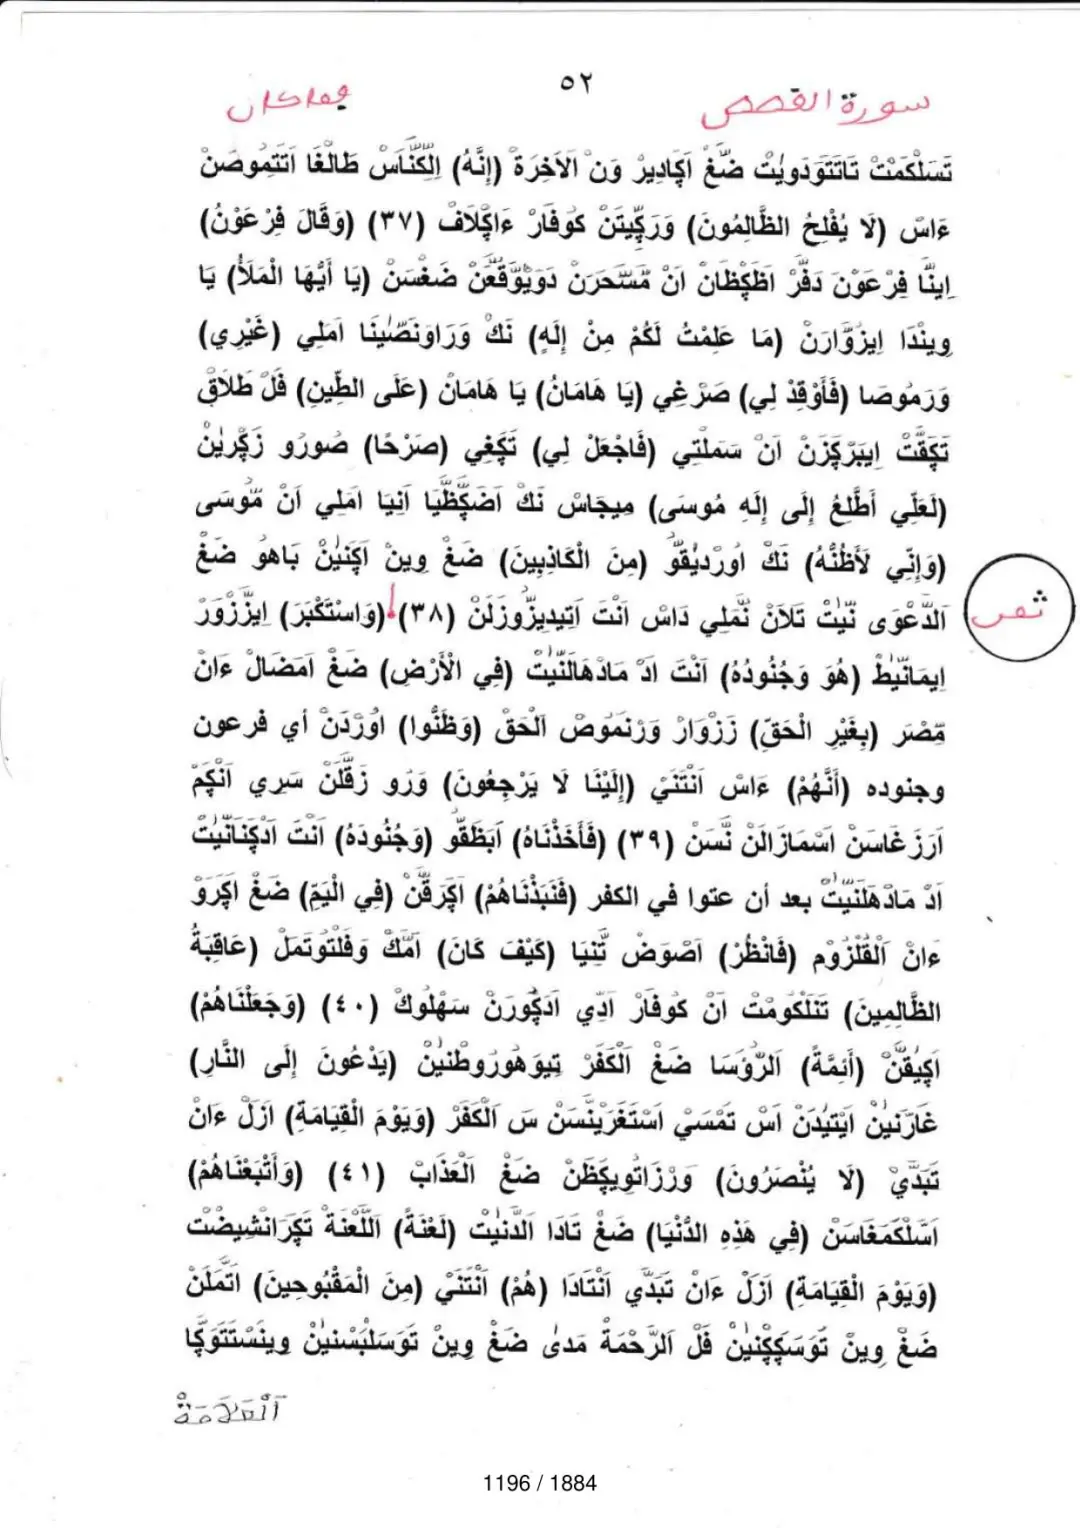 ٥٢
سورة القصص
فما كان
تَسَلْكَمْتْ تَاتَتَوَدَويْتْ ضَغْ اَكِادِيرْ وَنْ اْلآخِرَةْ (إِنَّهُ) اِلْكَنَّاسْ طَالْغَا اَتَتَمُوصَنْ
ءَاسْ (لَا يُفْلِحُ الظَّالِمُونَ) وَرَكِّيتَنْ كَوفَارْ ءَاكْلَافْ (٣٧) (وَقَالَ فِرْعَوْنُ)
اِينَّا فِرْعَوْنَ دَفَّرْ اَظَكِظَانْ اَنْ مَّسَّحَرَنْ دَوَيْوَقَعَنْ ضَغْسَنْ (يَا أَيُّهَا الْمَلَأُ) يَا
وِينْدَا اِيزْوَّارَنْ (مَا عَلِمْتُ لَكُمْ مِنْ إِلَهٍ) نَكْ وَرَاوَنَصَّيِنَا اَمَلِي (غَيْرِي)
وَرَمُوصَا (فَأَوْقِدْ لِي) صَرْغِي (يَا هَامَانُ) يَا هَامَانْ (عَلَى الطِّينِ) فَلْ طَلَاقْ
تَكِقَّتْ اِيبَرْكَزَنْ اَنْ سَمَلْتِي (فَاجْعَلْ لِي) تَكِغِي (صَرْحًا) صُورُو زَكِّرِينْ
(لَعَلِّي أَطَّلِعُ إِلَى إِلَهِ مُوسَى) مِيجَاسْ نَكْ اَضَكِّظَّيَا اَنِيَا اَمَلِي اَنْ مُّوسَى
(وَإِنِّي لَأَظُنُّهُ) نَكْ اُورْدِيْقَوُّ (مِنَ الْكَاذِبِينَ) ضَغْ وِينْ اَكِنِينْ بَاهُو ضَغْ
اَلدَّعْوَى نِّيتْ تَلَانْ نَّمَلِي دَاسْ اَنْتَ اَتِيدِيزُّوزَلَنْ (٣٨) (وَاسْتَكْبَرَ) اِيزَّزْوَرْ
ثمن
اِيمَانِّيْطْ (هُوَ وَجُنُودُهُ) اَنْتَ اَدْ مَادْهَالْنِّيتْ (فِي الْأَرْضِ) ضَغْ اَمَضَالْ ءَانْ
مِّصْرَ (بِغَيْرِ الْحَقِّ) زَزْوَارْ وَرْنَمُوصْ اَلْحَقْ (وَظَنُّوا) اُورْدَنْ أي فرعون
وجنوده (أَنَّهُمْ) ءَاسْ اَنْتَنَيْ (إِلَيْنَا لَا يَرْجِعُونَ) وَرَو زَقَّلَنْ سَرِي اَنْكِمْ
اَرَزَغَاسَنْ اَسْمَازَالَنْ نَّسَنْ (٣٩) (فَأَخَذْنَاهُ) اَبَظَقَّو (وَجُنُودَهُ) اَنْتَ اَدْكِنَانِّيتْ
اَدْ مَادْهَلْنِّيتْ بعد أن عتوا في الكفر (فَنَبَذْنَاهُمْ) اَكَرَقَّنْ (فِي الْيَمِّ) ضَغْ اَكَرَو
ءَانْ اَلْقُلْزُومْ (فَانْظُرْ) اَصْوَضْ تَّنِيَا (كَيْفَ كَانَ) اَمَّكْ وَفَلْتُوتَمَلْ (عَاقِبَةُ
الظَّالِمِينَ) تَنَلْكَومْتْ اَنْ كَوفَارْ اَدِّي اَدَكِورَنْ سَهْلُوكْ (٤٠) (وَجَعَلْنَاهُمْ)
اَكِيْقَنْ (أَئِمَّةً) اَلرُّؤَسَا ضَغْ اَلْكَفَرْ تِيوَهُورُوطْنِينْ (يَدْعُونَ إِلَى النَّارِ)
غَارَنِينْ اَيْتِيدَنْ اَسْ تَمْسَيْ اَسْتَغْرِينْسَنْ سَ اَلْكَفَرْ (وَيَوْمَ الْقِيَامَةِ) اَزَلْ ءَانْ
تَبَدَّيْ (لَا يُنْصَرُونَ) وَرْزَاتُويكِظَنْ ضَغْ اَلْعَذَابْ (٤١) (وَأَتْبَعْنَاهُمْ)
اَسَّلْكَمَغَاسَنْ (فِي هَذِهِ الدُّنْيَا) ضَغْ تَادَا اَلدَّنِّيتْ (لَعْنَةً) اَللَّعْنَةْ تَكِرَانْشِيضَتْ
(وَيَوْمَ الْقِيَامَةِ) اَزَلْ ءَانْ تَبَدَّي اَنْتَادَا (هُمْ) اَنْتَنَيْ (مِنَ الْمَقْبُوحِينَ) اَتَّمَلَنْ
ضَغْ وِينْ تَوَسَكِكِنِينْ فَلْ اَلرَّحْمَةْ مَدىٰ ضَغْ وِينْ تَوَسَلْبَسْنِينْ وِينَسْتَتَوَكِا
اَلْعَلَامَةْ
1196 / 1884